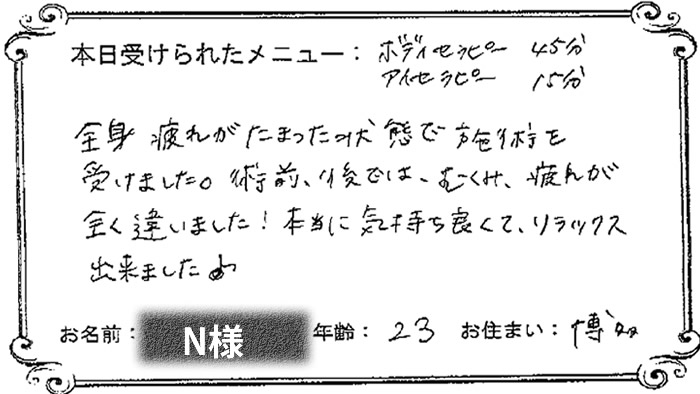 本日受けられたメニュー： ボディセラピー 45分
アイセラピー 15分
全身 疲れがたまった状態で施術を
受けました。術前、後では、むくみ、疲れが
全く違いました！本当に気持ち良くて、リラックス
出来ました♪
お名前： N様 年齢： 23 お住まい： 博多